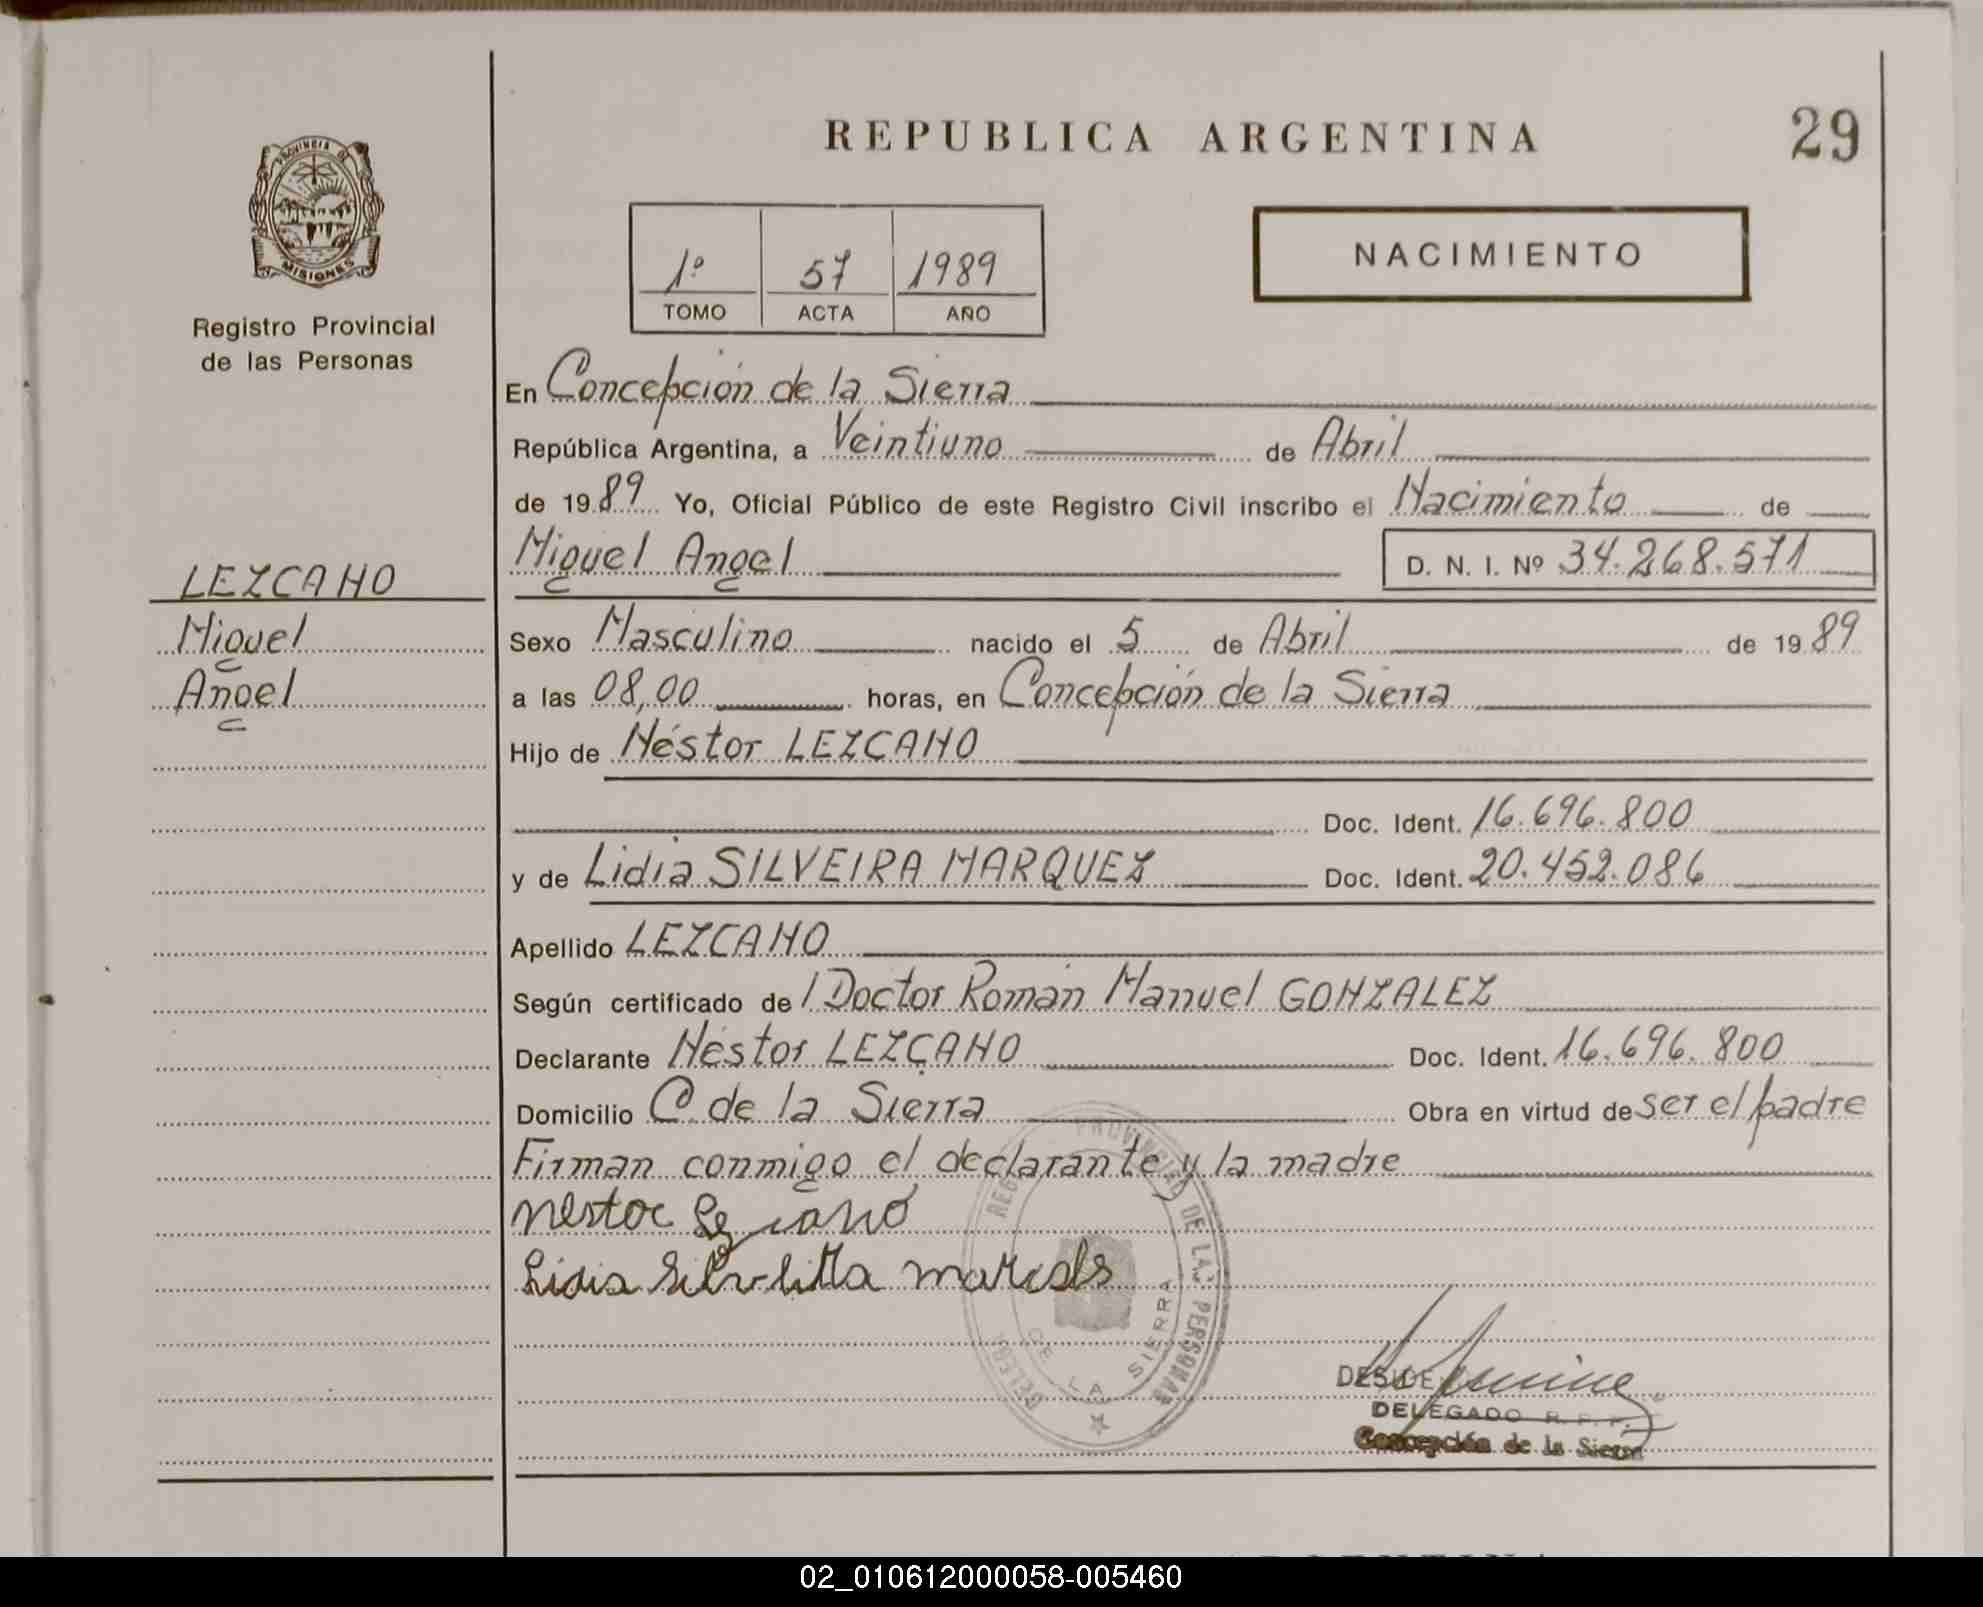 REPUBLICA ARGENTINA
29
PROVINCIA DE
MISIONES
Registro Provincial
de las Personas
1º 57 1989
TOMO ACTA AÑO
NACIMIENTO
En Concepción de la Sierra
República Argentina, a Veintiuno de Abril
de 1989 Yo, Oficial Público de este Registro Civil inscribo el Nacimiento de
Miguel Angel D. N. I. Nº 34.268.571
LEZCANO
Miguel
Angel
Sexo Masculino nacido el 5 de Abril de 1989
a las 08,00 horas, en Concepción de la Sierra
Hijo de Néstor LEZCANO
Doc. Ident. 16.696.800
y de Lidia SILVEIRA MARQUEZ Doc. Ident. 20.452.086
Apellido LEZCANO
Según certificado de / Doctor Román Manuel GONZALEZ
Declarante Néstor LEZCANO Doc. Ident. 16.696.800
Domicilio C. de la Sierra Obra en virtud de ser el padre
Firman conmigo el declarante y la madre
nestor Lezcano
Lidia
PROVINCIAL DE LAS PERSONAS
DE LA SIERRA
DELEGADO R. P. P.
Concepción de la Sierra
02_010612000058-005460